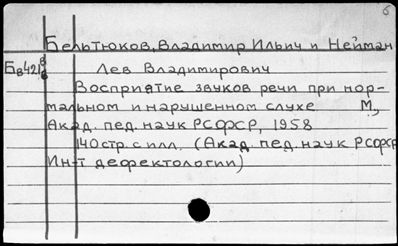 б
Бельтюков, Владимир Ильич и Нейман
Бв421 Лев Владимирович
Восприятие звуков речи при нор-
мальном и нарушенном слухе М.,
Акад. пед. наук РСФСР, 1958
140 стр. с илл. (Акад. пед. наук РСФСР
Ин-т дефектологии)